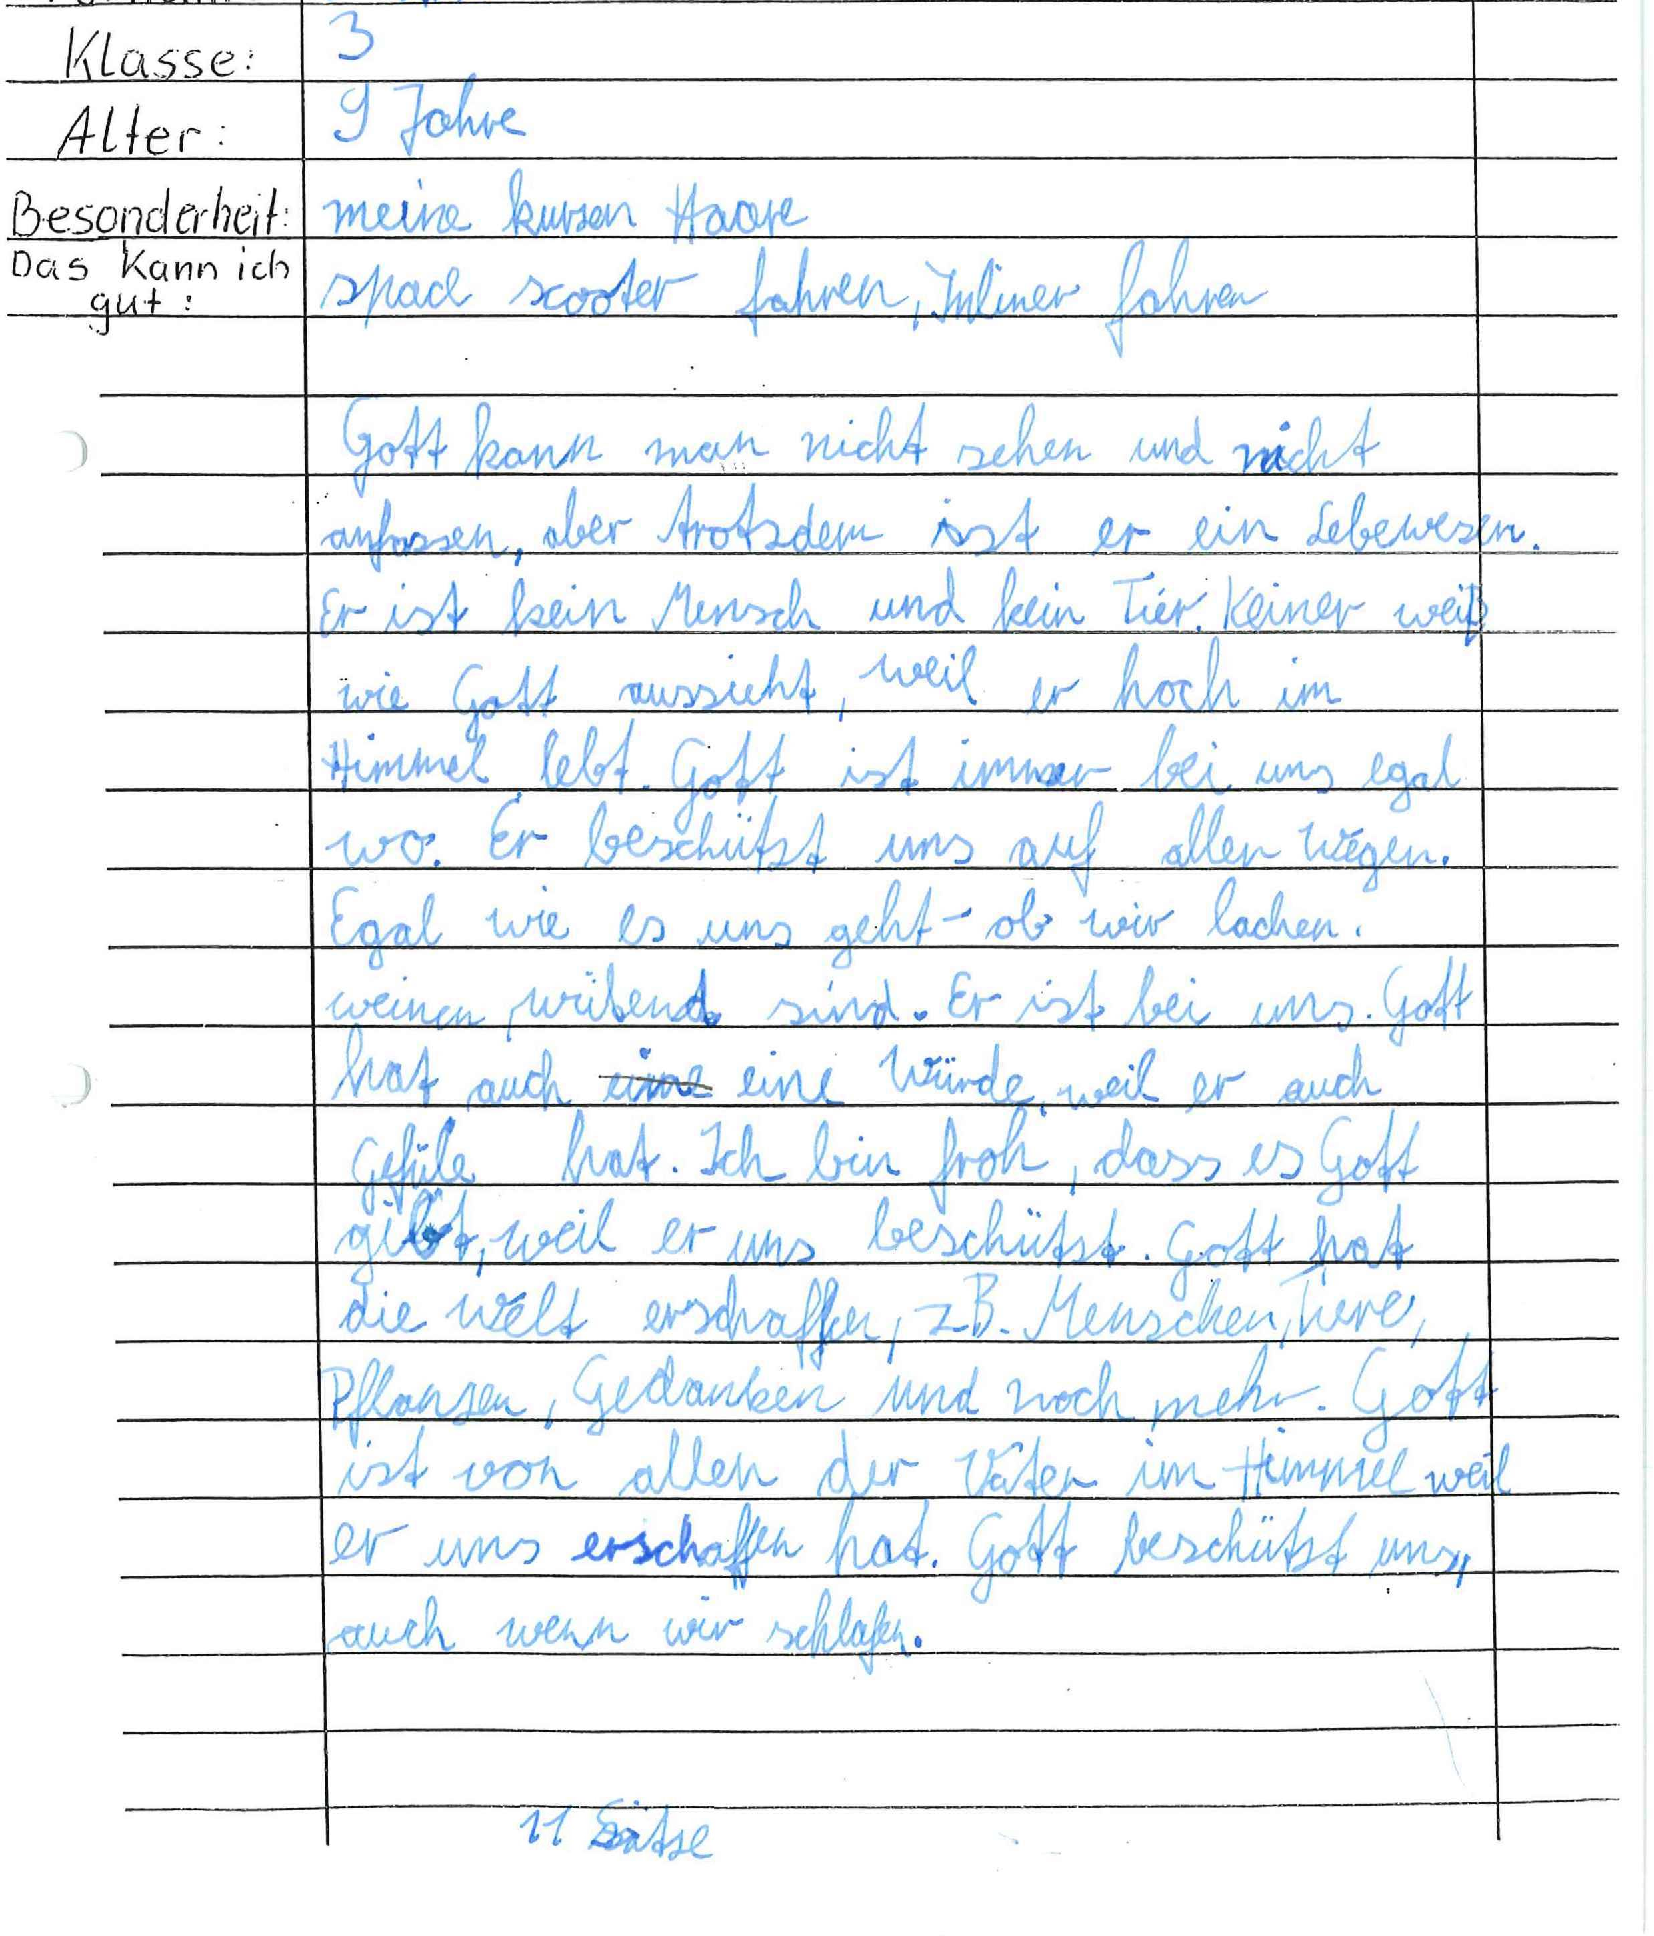 Klasse: 3
Alter: 9 Jahre
Besonderheit: meine kurzen Haare
Das kann ich gut: spacescooter fahren, Inliner fahren
Gott kann man nicht sehen und nicht
anfassen, aber trotzdem ist er ein Lebewesen.
Er ist kein Mensch und kein Tier. Keiner weiß
wie Gott aussieht, weil er hoch im
Himmel lebt. Gott ist immer bei uns egal
wo. Er beschützt uns auf allen Wegen.
Egal wie es uns geht - ob wir lachen.
weinen, wütend sind. Er ist bei uns. Gott
hat auch eine eine Würde, weil er auch
Gefüle hat. Ich bin froh, dass es Gott
gibt, weil er uns beschützt. Gott hat
die Welt erschaffen, z.B. Menschen, Tiere,
Pflanzen, Gedanken und noch mehr. Gott
ist von allen der Vater im Himmel weil
er uns erschaffen hat. Gott beschützt uns,
auch wenn wir schlafen.
11 Sätze